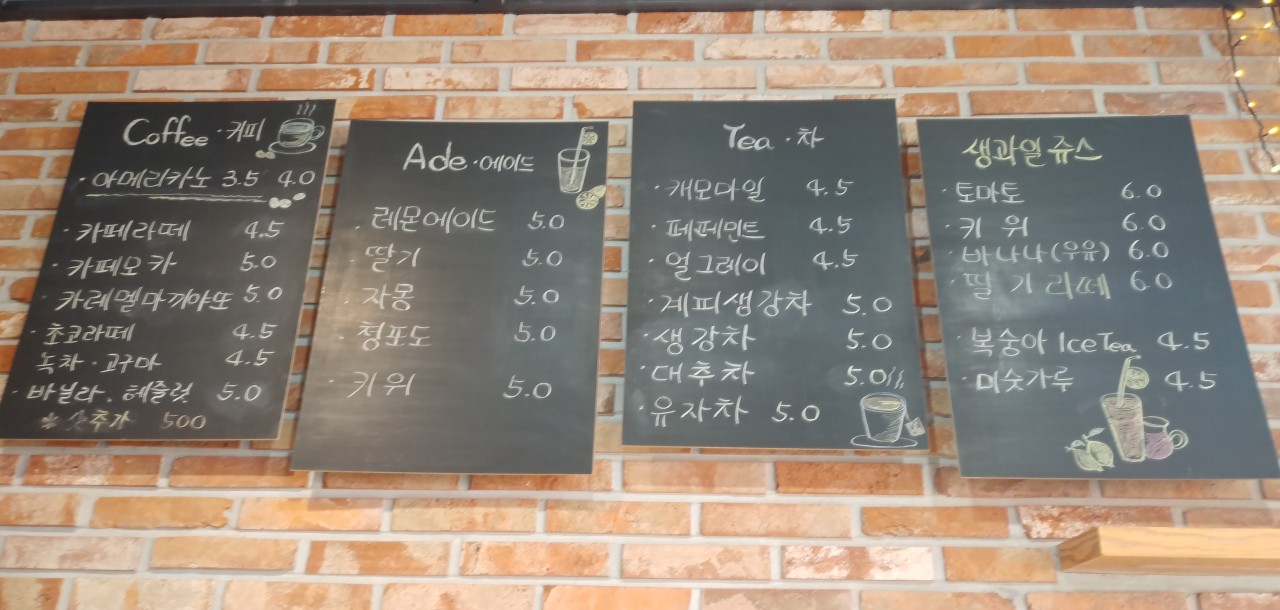 Coffee · 커피
· 아메리카노 3.5 4.0
· 카페라떼 4.5
· 카페모카 5.0
· 카레멜마끼야또 5.0
· 초코라떼 4.5
녹차 · 고구마 4.5
· 바닐라 . 헤즐럿 5.0
* 샷추가 500
Ade · 에이드
· 레몬에이드 5.0
· 딸기 5.0
· 자몽 5.0
· 청포도 5.0
· 키위 5.0
Tea · 차
· 캐모마일 4.5
· 페페민트 4.5
· 얼그레이 4.5
· 계피생강차 5.0
· 생강차 5.0
· 대추차 5.0
· 유자차 5.0
생과일쥬스
· 토마토 6.0
· 키위 6.0
· 바나나(우유) 6.0
· 딸기라떼 6.0
· 복숭아 Ice Tea 4.5
· 미숫가루 4.5